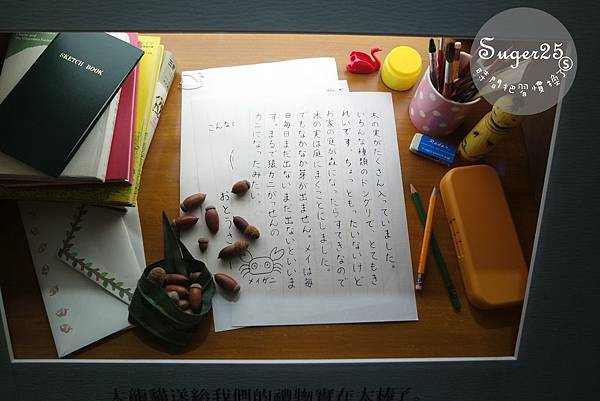 SKETCH BOOK
Suger25
時間把習慣換了
木の実がたくさん入っていました。
いろんな種類のドングリで、とてもき
れいです。ちょっともったいないけど
お家の庭が森になったらすてきなので
木の実は庭にまくことにしました。
でもなかなか芽が出ません。メイは毎
日毎日まだ出ないまだ出ないといいま
す。まるで猿カニがっせんの
カニになったみたい。
メイガニ
こんな
おとうさ
大龍貓送給我們的禮物實在太棒了。